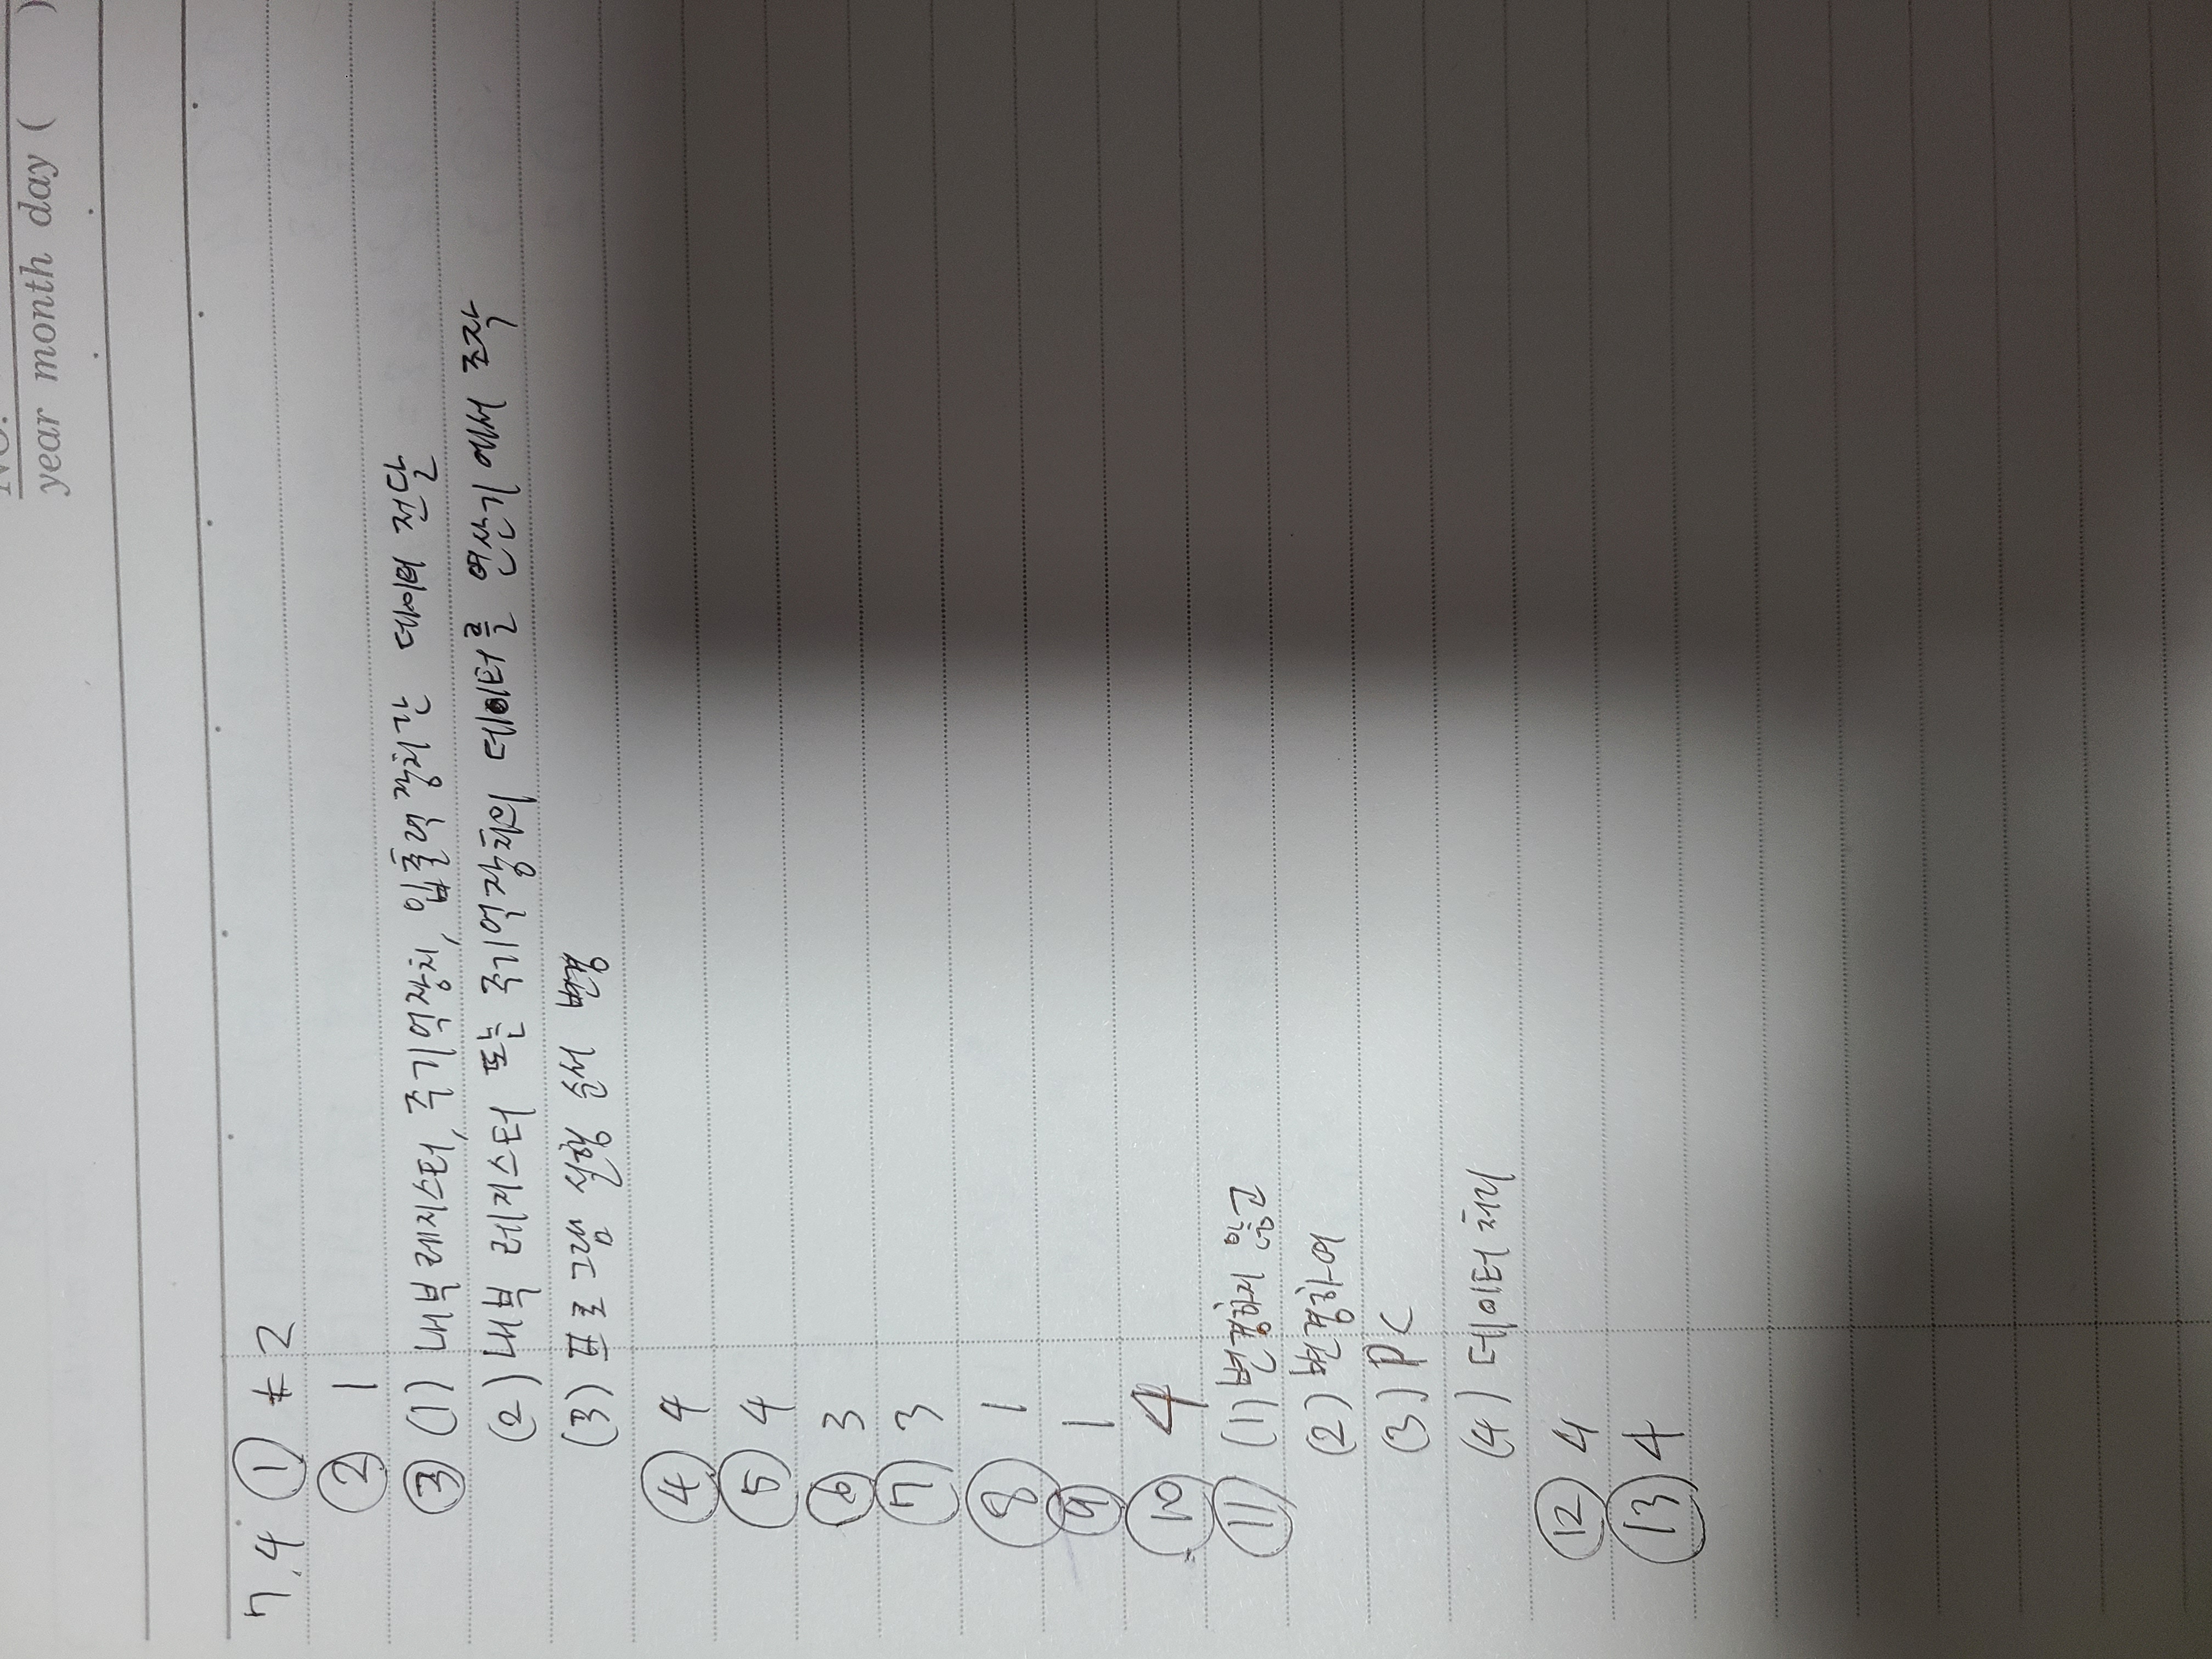 NO.
year month day ( )
7.4 ① 2
② 1
③ (1) 내부레지스터, 주기억장치, 입출력장치간 데이터 전달
(2) 내부 레지스터 또는 주기억장치의 데이터를 연산기에서 조작
(3) 프로그램 실행 순서 변경
④ 4
⑤ 4
⑥ 3
⑦ 3
⑧ 1
⑨ 1
⑩ 4
⑪ (1) 변경하지 않고
(2) 변경하여
(3) PC
(4) 데이터 처리
⑫ 4
⑬ 4